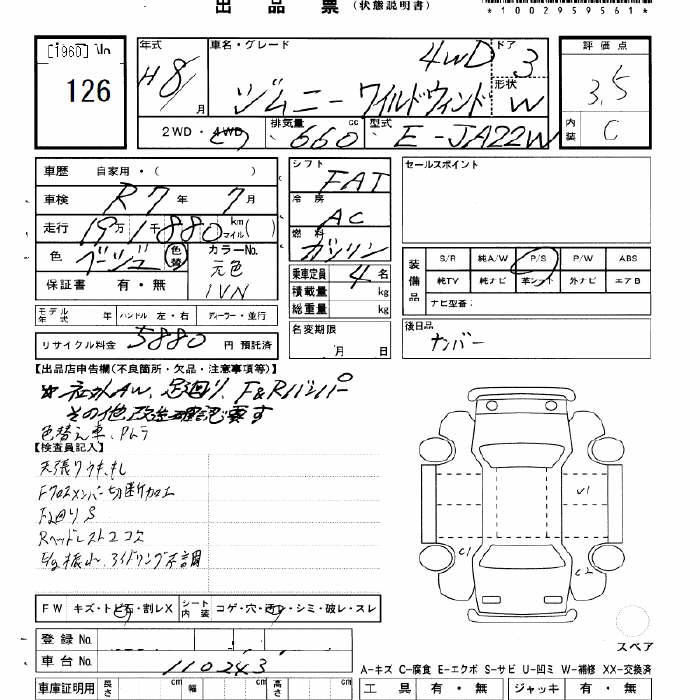 出品票(状態説明書)
*1002959561*
1960 No
126
年式 H8/ 月
車名・グレード 4WD
ジムニー ワイルドウィンド
ドア 3
形状 W
評価点 3.5
内装 C
2WD・4WD 排気量 660 cc 型式 E-JA22W
車歴 自家用・( )
車検 R7年 7月
走行 19万1千880 km (マイル)
色 ベージュ 色替 カラーNo. 元色 1VN
保証書 有・無
シフト FAT
冷房 AC
燃料 ガソリン
乗車定員 4名
積載量 kg
総重量 kg
名変期限 月 日
セールスポイント
装備品 S/R 純A/W P/S P/W ABS
純TV 純ナビ 革シート 外ナビ エアB
ナビ型番:
後日品
ナンバー
モデル年式 年 ハンドル 左・右 ディーラー・並行
リサイクル料金 5880 円 預託済
【出品店申告欄(不良箇所・欠品・注意事項等)】
社外AW、足廻り、F&Rバンパー
その他改造確認要す
色替え車、
【検査員記入】
天張り
Fクロスメンバー切断加工
下廻りS
Rヘッドレスト2コ欠
E/g振、アイドリング不調
W1
C1
C2
FW キズ・トビ石・割レX シート内装 コゲ・穴・切レ・シミ・破レ・スレ
登録No.
車台No. 110243
車庫証明用 長さ cm 幅 cm 高さ cm
スペア
A-キズ C-腐食 E-エクボ S-サビ U-凹ミ W-補修 XX-交換済
工具 有・無 ジャッキ 有・無